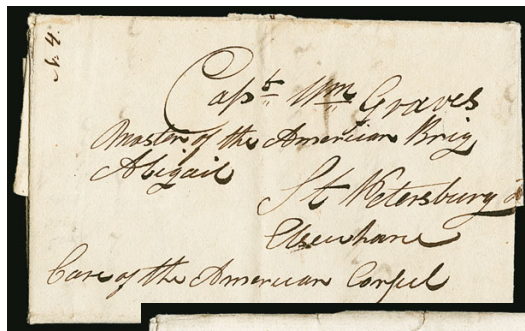 N. 4.
Capt Wm Graves
Master of the American Brig
Abigail
St Petersburg or
Elsewhare
Care of the American Consul